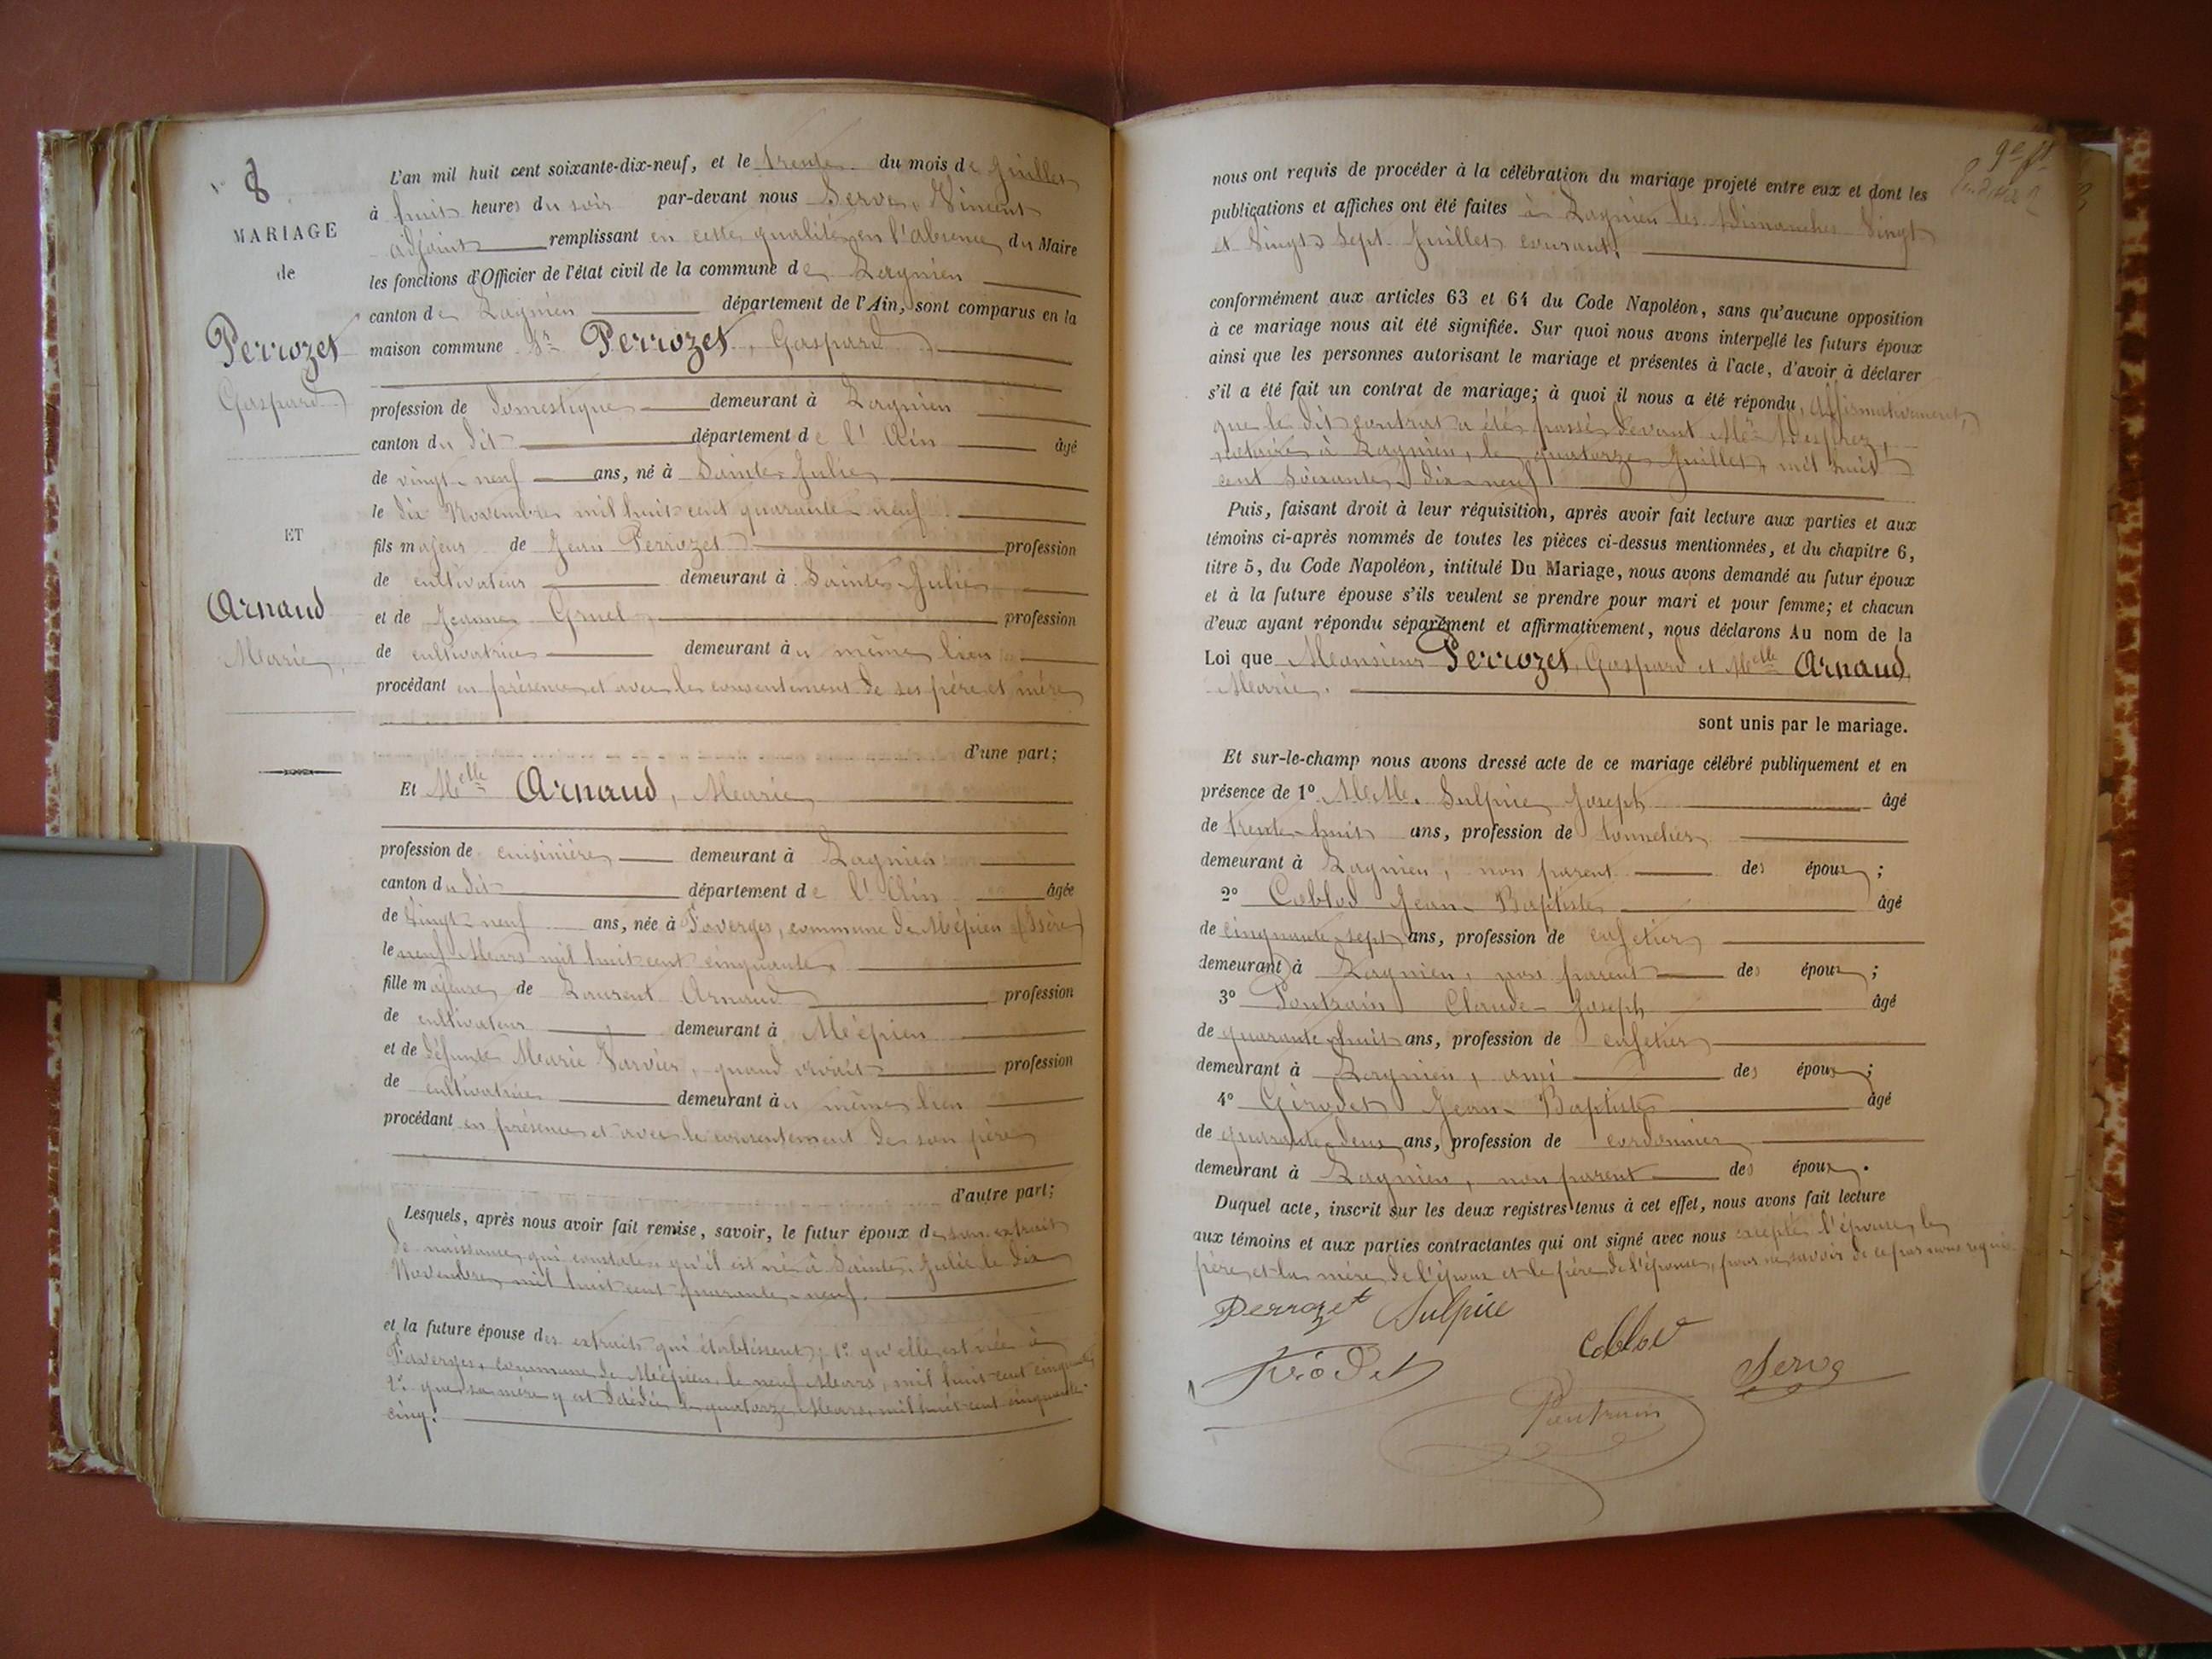 8
MARIAGE
de
Perrozet
Gaspard
ET
Arnaud
Marie,
L'an mil huit cent soixante-dix-neuf, et le trente du mois de Juillet
à huit heures du soir par-devant nous Serve, Vincent
adjoint remplissant en cette qualité, en l'absence du Maire
les fonctions d'Officier de l'état civil de la commune de Lagnieu
canton de Lagnieu département de l'Ain, sont comparus en la
maison commune Sr Perrozet, Gaspard
profession de domestique demeurant à Lagnieu
canton du dit département de l'Ain âgé
de vingt-neuf ans, né à Sainte-Julie
le dix Novembre mil huit cent quarante-neuf
fils majeur de Jean Perrozet profession
de cultivateur demeurant à Sainte-Julie
et de Jeanne profession
de cultivatrice demeurant au même lieu
procédant en présence et avec le consentement de ses père et mère
d'une part;
Et Melle Arnaud, Marie
profession de cuisinière demeurant à Lagnieu
canton du dit département de l'Ain âgée
de vingt-neuf ans, née à Faverges, commune de Mépieu (Isère)
le neuf Mars mil huit cent cinquante
fille majeure de Laurent Arnaud profession
de cultivateur demeurant à Mépieu
et de défunte Marie quand vivait profession
de cultivatrice demeurant au même lieu
procédant en présence et avec le consentement de son père
d'autre part;
Lesquels, après nous avoir fait remise, savoir, le futur époux de son extrait
de naissance, qui constate qu'il est né à Sainte-Julie le dix
Novembre mil huit cent quarante-neuf.
et la future épouse des extraits qui établissent; 1° qu'elle est née à
Faverges, commune de Mépieu, le neuf Mars, mil huit cent cinquante,
2° que sa mère y est décédée le quatorze Mars, mil huit cent cinquante
cinq.
nous ont requis de procéder à la célébration du mariage projeté entre eux et dont les
publications et affiches ont été faites à Lagnieu les Dimanches Vingt
et Vingt Sept Juillet courant.
conformément aux articles 63 et 64 du Code Napoléon, sans qu'aucune opposition
à ce mariage nous ait été signifiée. Sur quoi nous avons interpellé les futurs époux
ainsi que les personnes autorisant le mariage et présentes à l'acte, d'avoir à déclarer
s'il a été fait un contrat de mariage; à quoi il nous a été répondu, affirmativement,
que le dit contrat a été passé devant Me
notaire à Lagnieu, le quatorze Juillet, mil huit
cent soixante-dix-neuf
Puis, faisant droit à leur réquisition, après avoir fait lecture aux parties et aux
témoins ci-après nommés de toutes les pièces ci-dessus mentionnées, et du chapitre 6,
titre 5, du Code Napoléon, intitulé Du Mariage, nous avons demandé au futur époux
et à la future épouse s'ils veulent se prendre pour mari et pour femme; et chacun
d'eux ayant répondu séparément et affirmativement, nous déclarons Au nom de la
Loi que Monsieur Perrozet, Gaspard et Melle Arnaud,
Marie.
sont unis par le mariage.
Et sur-le-champ nous avons dressé acte de ce mariage célébré publiquement et en
présence de 1° M.M. Sulpice Joseph âgé
de trente-huit ans, profession de tonnelier
demeurant à Lagnieu, non parent des époux;
2° Coblod Jean-Baptiste âgé
de cinquante-sept ans, profession de cafetier
demeurant à Lagnieu, non parent des époux;
3° Poutrain Claude-Joseph âgé
de quarante-huit ans, profession de cafetier
demeurant à Lagnieu, ami des époux;
4° Girodet Jean-Baptiste âgé
de quarante-deux ans, profession de cordonnier
demeurant à Lagnieu, non parent des époux.
Duquel acte, inscrit sur les deux registres tenus à cet effet, nous avons fait lecture
aux témoins et aux parties contractantes qui ont signé avec nous excepté l'épouse, le
père et la mère de l'époux et le père de l'épouse, pour ne savoir de ce par nous requis
Perrozet Sulpice
Coblod
Serve